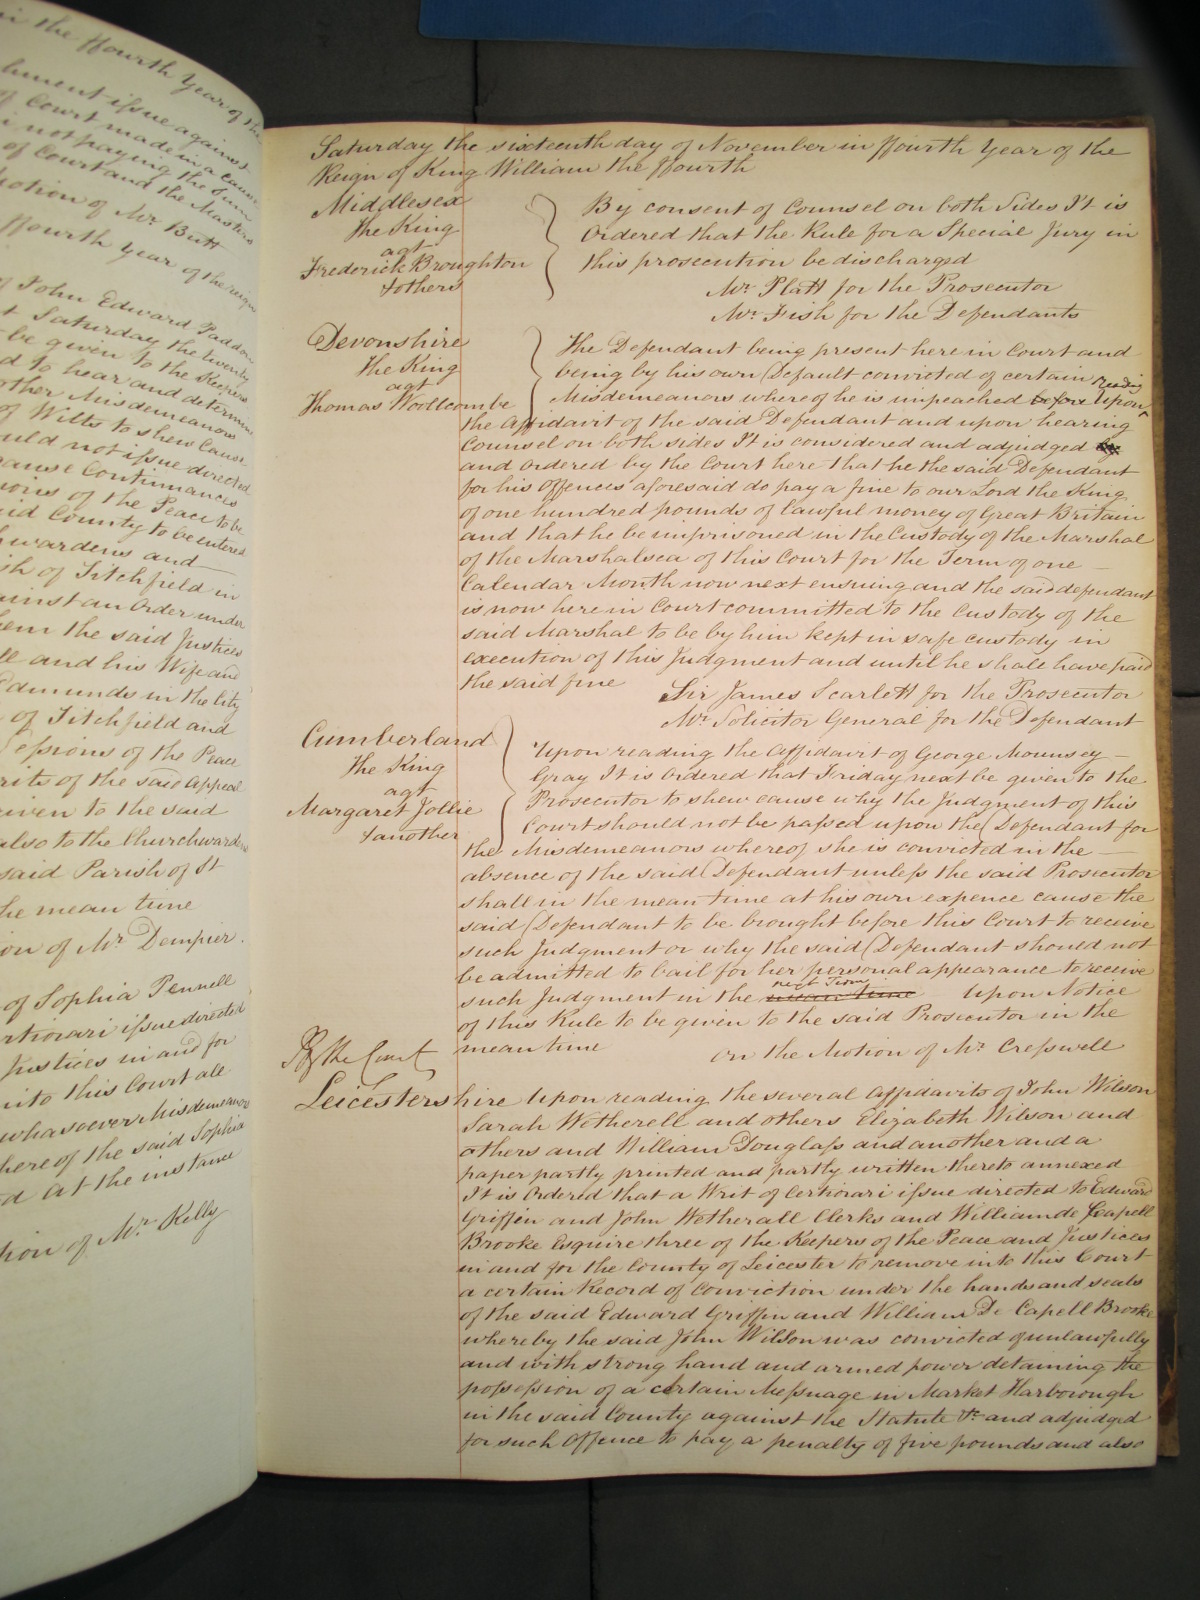 in the ffourth Year of the
chment issue against
of Court made in a Cause
not paying the Sum
of Court and the Masters
Motion of Mr. Butt
ffourth year of the reign
of John Edward Paddon
t Saturday the twenty
be given to the Keepers
d to hear and determine
other Misdemeanors
of Wilts to shew Cause
ould not issue directed
cause Continuances
sions of the Peace to be
id County to be entered
hwardens and
sh of Titchfield in
ainst an Order under
em the said Justices
ll and his Wife and
Edmunds in the City
of Titchfield and
essions of the Peace
rits of the said Appeal
given to the said
also to the Churchwardens
said Parish of St
he mean time
ion of Mr. Dempier.
of Sophia Pennell
rtiorari issue directed
Justices in and for
into this Court all
whatsoever Misdemeanors
here of the said Sophia
d at the instance
tion of Mr. Kelly
Saturday the sixteenth day of November in ffourth Year of the
Reign of King William the ffourth
Middlesex
The King
agt
Frederick Broughton
& others
By consent of Counsel on both Sides It is
Ordered that the Rule for a Special Jury in
this prosecution be discharged
Mr. Platt for the Prosecutor
Mr. Fish for the Defendants
Devonshire
The King
agt
Thomas Woollcombe
The Defendant being present here in Court and
being by his own Default convicted of certain
Misdemeanors whereof he is impeached before Upon reading
the Affidavit of the said Defendant and upon hearing
Counsel on both sides It is considered and adjudged
and ordered by the Court here that he the said Defendant
for his Offences aforesaid do pay a fine to our Lord the King
of one hundred pounds of lawful money of Great Britain
and that he be imprisoned in the Custody of the Marshal
of the Marshalsea of this Court for the Term of one
Calendar Month now next ensuing and the said defendant
is now here in Court committed to the Custody of the
said Marshal to be by him kept in safe custody in
execution of this Judgment and until he shall have paid
the said fine
Sir James Scarlett for the Prosecutor
Mr. Solicitor General for the Defendant
Cumberland
The King
agt
Margaret Jollie
& another
Upon reading the Affidavit of George Mounsey
Gray It is Ordered that Friday next be given to the
Prosecutor to shew cause why the Judgment of this
Court should not be passed upon the Defendant for
the Misdemeanors whereof she is convicted in the
absence of the said Defendant unless the said Prosecutor
shall in the mean time at his own expence cause the
said Defendant to be brought before this Court to receive
such Judgment or why the said Defendant should not
be admitted to bail for her personal appearance to receive
such Judgment in the mean time next Term Upon Notice
of this Rule to be given to the said Prosecutor in the
mean time
On the Motion of Mr. Cresswell
By the Court
Leicestershire Upon reading the several Affidavits of John Wilson
Sarah Wetherell and others Elizabeth Wilson and
others and William Douglass and another and a
paper partly printed and partly written thereto annexed
It is Ordered that a Writ of Certiorari issue directed to Edward
Griffin and John Wetherall Clerks and William de Capell
Brooke Esquire three of the Keepers of the Peace and Justices
in and for the County of Leicester to remove into this Court
a certain Record of Conviction under the hands and seals
of the said Edward Griffin and William De Capell Brooke
whereby the said John Wilson was convicted of unlawfully
and with strong hand and armed power detaining the
possession of a certain Messuage in Market Harborough
in the said County against the Statute &c and adjudged
for such Offence to pay a penalty of five pounds and also